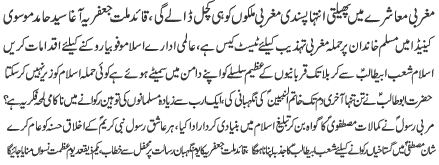 مغربی معاشرے میں پھیلتی انتہا پسندی مغربی ملکوں کو ہی کچل ڈالے گی، قائد ملت جعفریہ آغا سید حامد موسوی
کینیڈا میں مسلم خاندان پر حملہ مغربی تہذیب کیلئے ٹیسٹ کیس ہے، عالمی ادارے اسلاموفوبیا روکنے کیلئے اقدامات کریں
اسلام شعب ابیطالبؑ سے کربلا تک قربانیوں کے عظیم سلسلے کو اپنے دامن میں سمیٹے ہوئے ہے کوئی حملہ اسلام کو زیر نہیں کر سکتا
حضرت ابو طالبؑ نے تن تنہا آخری دم تک خاتم النبیینؐ کی نگہبانی کی، ایک ارب سے زیادہ مسلمانوں کی توہین رکوانے میں ناکامی لمحہ فکریہ ہے؟
مربی رسولؐ نے کمالات مصطفویؐ کا گواہ بن کر تبلیغ اسلام میں بنیادی کردار ادا کیا، ہر عاشق رسولؐ نبی کریمؐ کے اخلاق حسنہ کو عام کرے
شان مصطفیؐ میں گستاخیاں رکوانے کیلئے شعب ابیطالبؑ کا جذبہ اپنانا ہوگا، قائد ملت جعفریہ کا یوم نگہبان رسالت پر محفل سے خطاب، یکم ذیقعد یوم عظمت نسواں منایا جائیگا